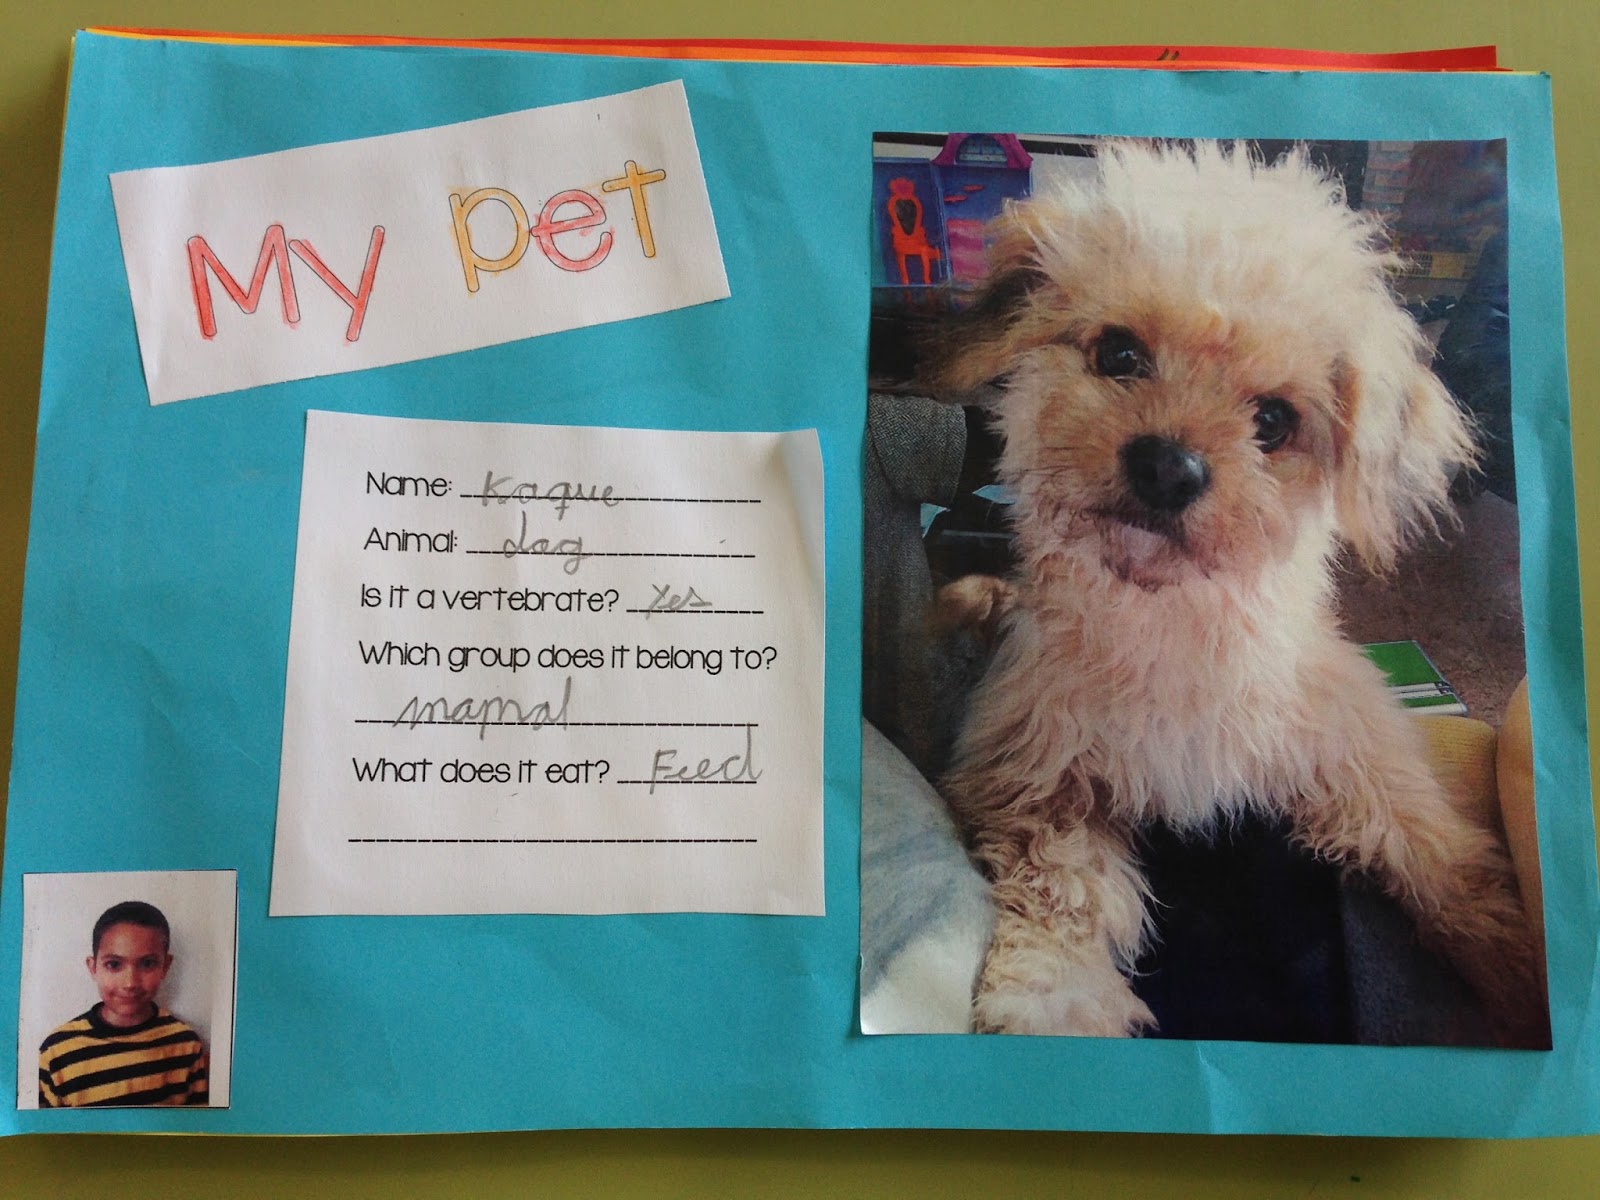 My pet
Name: Kaque
Animal: dog
Is it a vertebrate? Yes
Which group does it belong to?
mamal
What does it eat? Feed